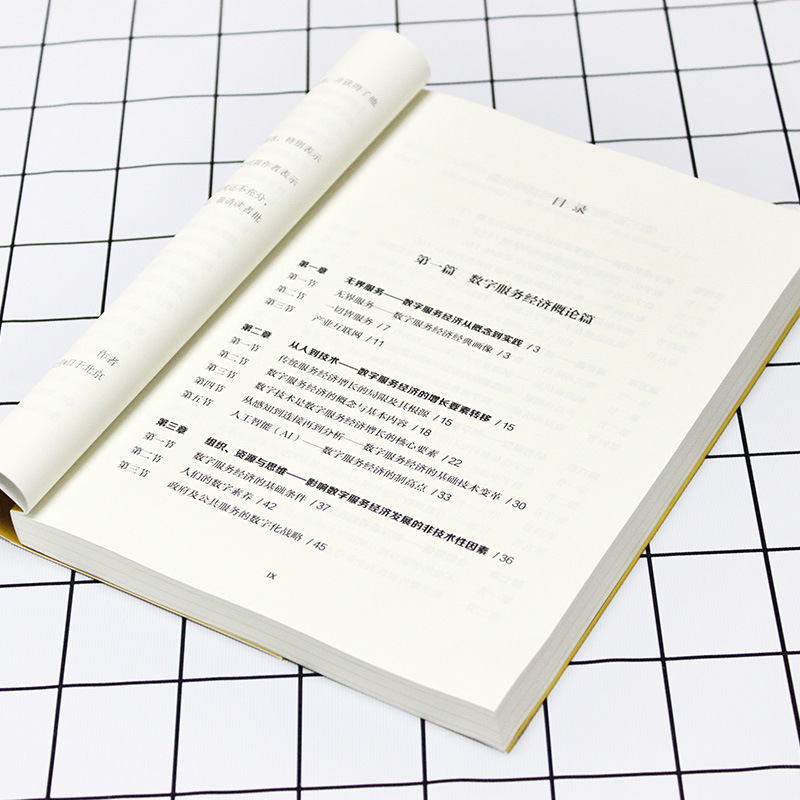 并获得了他
特别表示
作者表示
还不充分,
敬请读者批
作者
日于北京
目录
第一篇 数字服务经济概论篇
第一章 无界服务——数字服务经济从概念到实践 / 3
第一节 无界服务——数字服务经济经典画像 / 3
第二节 一切皆服务 / 7
第三节 产业互联网 / 11
第二章 从人到技术——数字服务经济的增长要素转移 / 15
第一节 传统服务经济增长的局限及其根源 / 15
第二节 数字服务经济的概念与基本内容 / 18
第三节 数字技术是数字服务经济增长的核心要素 / 22
第四节 从感知到连接再到分析——数字服务经济的基础技术变革 / 30
第五节 人工智能（AI）——数字服务经济的制高点 / 33
第三章 组织、资源与思维——影响数字服务经济发展的非技术性因素 / 36
第一节 数字服务经济的基础条件 / 37
第二节 人们的数字素养 / 42
第三节 政府及公共服务的数字化战略 / 45
IX